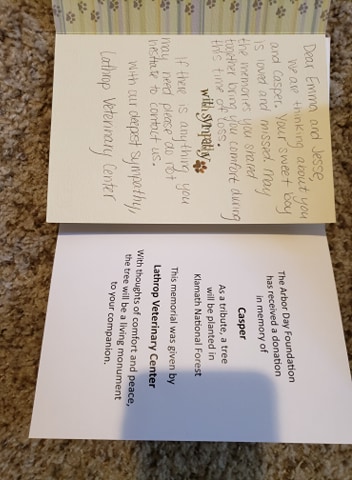 Dear Emma and Jesse,
We are thinking about you
and Casper. Your sweet boy
is loved and missed. May
the memories you shared
together bring you comfort during
this time of loss.
with sympathy
If there is anything you
may need please do not
hesitate to contact us.
with our deepest sympathy,
Lathrop Veterinary Center
The Arbor Day Foundation
has received a donation
in memory of
Casper
As a tribute, a tree
will be planted in
Klamath National Forest
This memorial was given by
Lathrop Veterinary Center
With thoughts of comfort and peace,
the tree will be a living monument
to your companion.